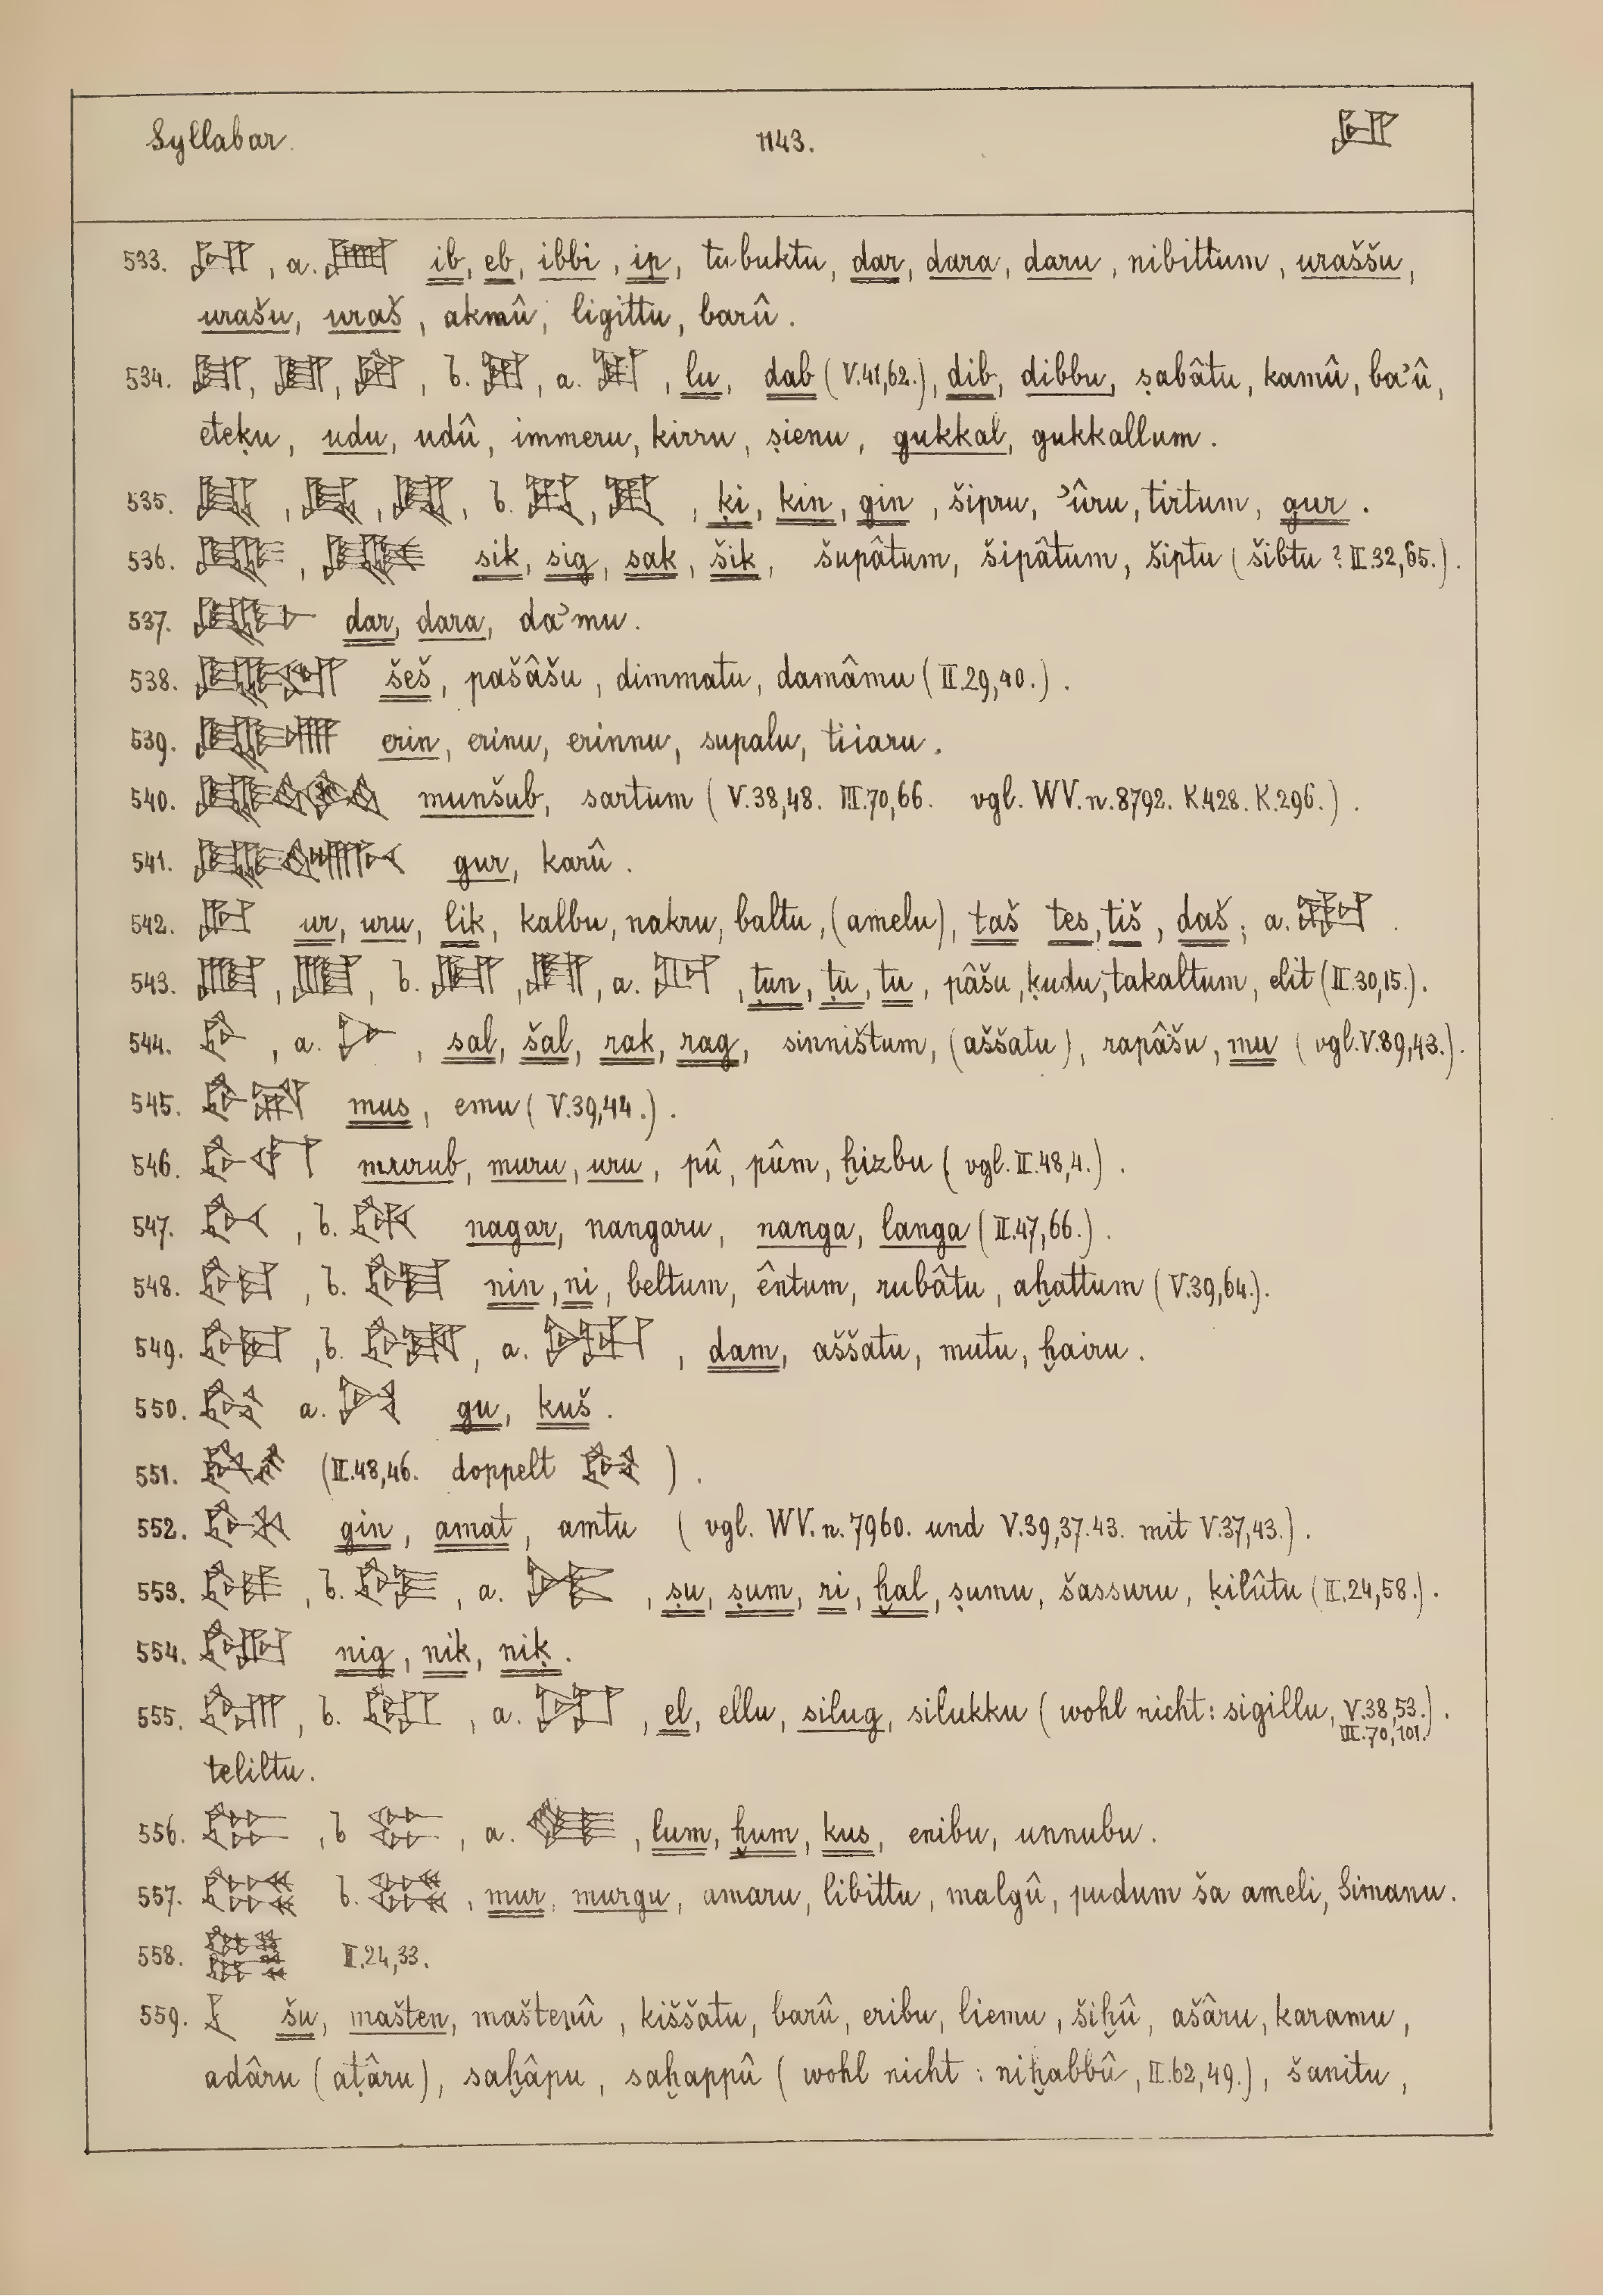 Syllabar. 1143. 𒅁
533. 𒅁, a. ib, eb, ibbi, ip, tubuktu, dar, dara, daru, nibittum, uraššu,
urašu, uraš, akmû, ligittu, barû.
534. 𒇻, b. a. , lu, dab (V.41,62.), dib, dibbu, ṣabâtu, kamû, ba’û,
eteḳu, udu, udû, immeru, kirru, ṣienu, gukkal, gukkallum.
535. 𒆥, b. , ḳi, kin, gin, šipru, ’ûru, tirtum, gur.
536. 𒋠, sik, sig, sak, šik, šupâtum, šipâtum, šiptu (šibtu? II.32,65.).
537. dar, dara, da’mu.
538. šeš, pašâšu, dimmatu, damâmu (II.29,40.).
539. erin, erinu, erinnu, supalu, tiiaru.
540. munšub, sartum (V.38,48. III.70,66. vgl. WV.n.8792. K.428. K.296.).
541. gur, karû.
542. 𒌨 ur, uru, lik, kalbu, nakru, baltu, (amelu), taš tes, tiš, daš; a. .
543. b. , a. , ṭun, ṭu, tu, pâšu, ḳudu, takaltum, elit (II.30,15.).
544. 𒊩, a. , sal, šal, rak, rag, sinništum, (aššatu), rapâšu, mu (vgl.V.89,43.).
545. mus, emu (V.39,44.).
546. murub, muru, uru, pû, pûm, ḫizbu (vgl. II.48,4.).
547. , b. nagar, nangaru, nanga, langa (II.47,66.).
548. 𒊩𒌆, b. nin, ni, beltum, êntum, rubâtu, aḫattum (V.39,64.).
549. 𒁮, b. , a. , dam, aššatu, mutu, ḫairu.
550. 𒄖 a. gu, kuš.
551. (II.48,46. doppelt ).
552. 𒊩𒆳 gin, amat, amtu (vgl. WV.n.7960. und V.39,37.43. mit V.37,43.).
553. , b. , a. , ṣu, ṣum, ri, ḫal, ṣumu, šassuru, ḳilûtu (II.24,58.).
554. 𒊩𒌨 nig, nik, niḳ.
555. 𒂖, b. , a. , el, ellu, silug, silukku (wohl nicht: sigillu, V.38,53.).
III.70,101.
teliltu.
556. 𒈝, b , a. , lum, ḫum, kus, enibu, unnubu.
557. b. , mur, murgu, amaru, libittu, malgû, pudum ša ameli, Simanu.
558. II.24,33.
559. 𒋙 šu, mašten, maštenû, kiššatu, barû, eribu, liemu, šiḫû, ašâru, karamu,
adâru (aṭâru), saḫâpu, saḫappû (wohl nicht: niḫabbû, II.62,49.), šanitu,